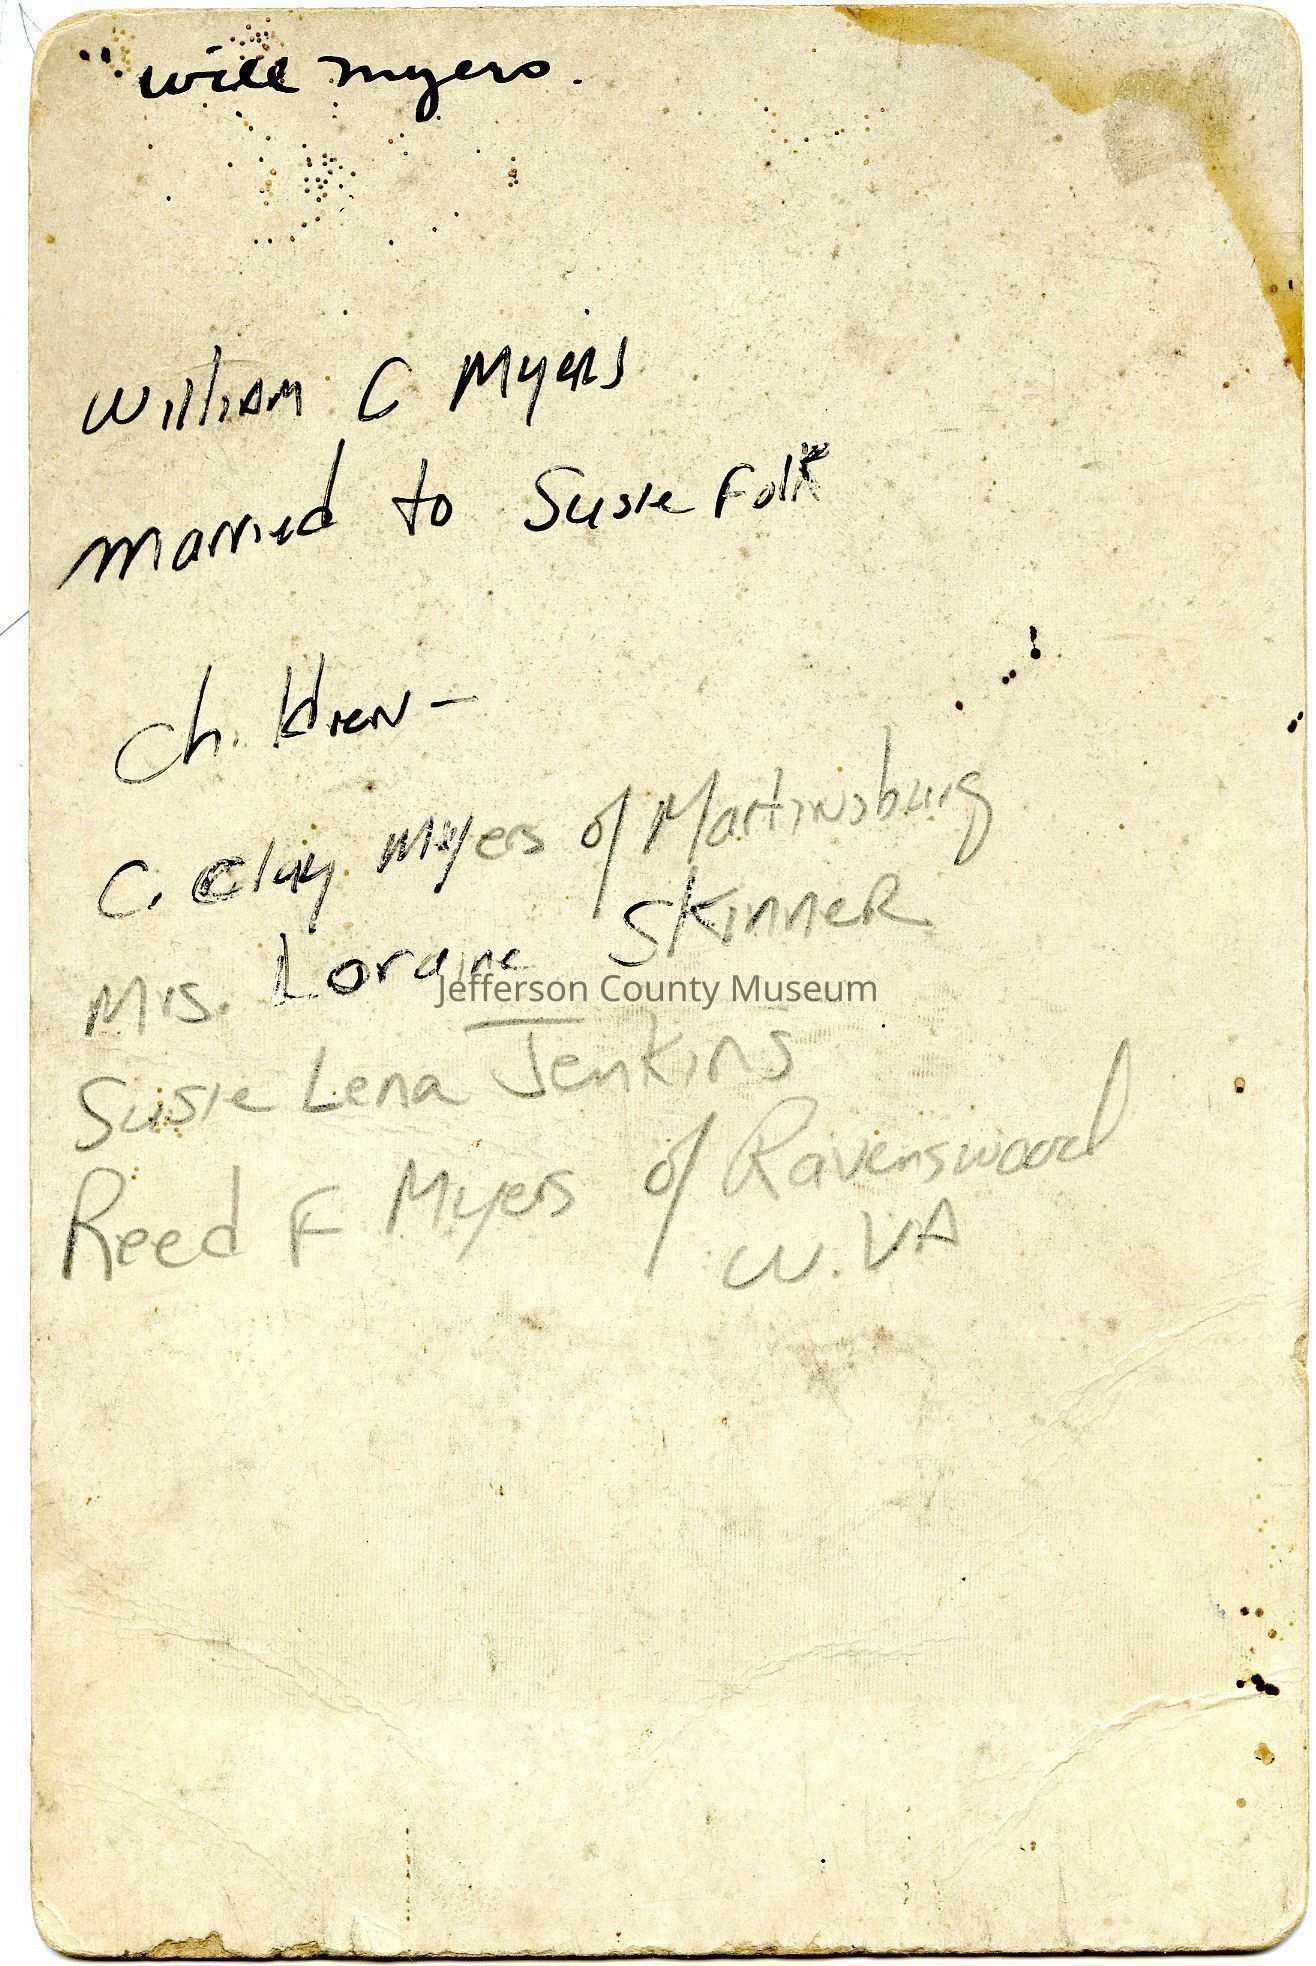 will myers.
William C Myers
Married to Susie Folk
Children -
C. Clay Myers of Martinsburg
Mrs. Loraine Skinner
Jefferson County Museum
Susie Lena Jenkins
Reed F Myers of Ravenswood
W. VA